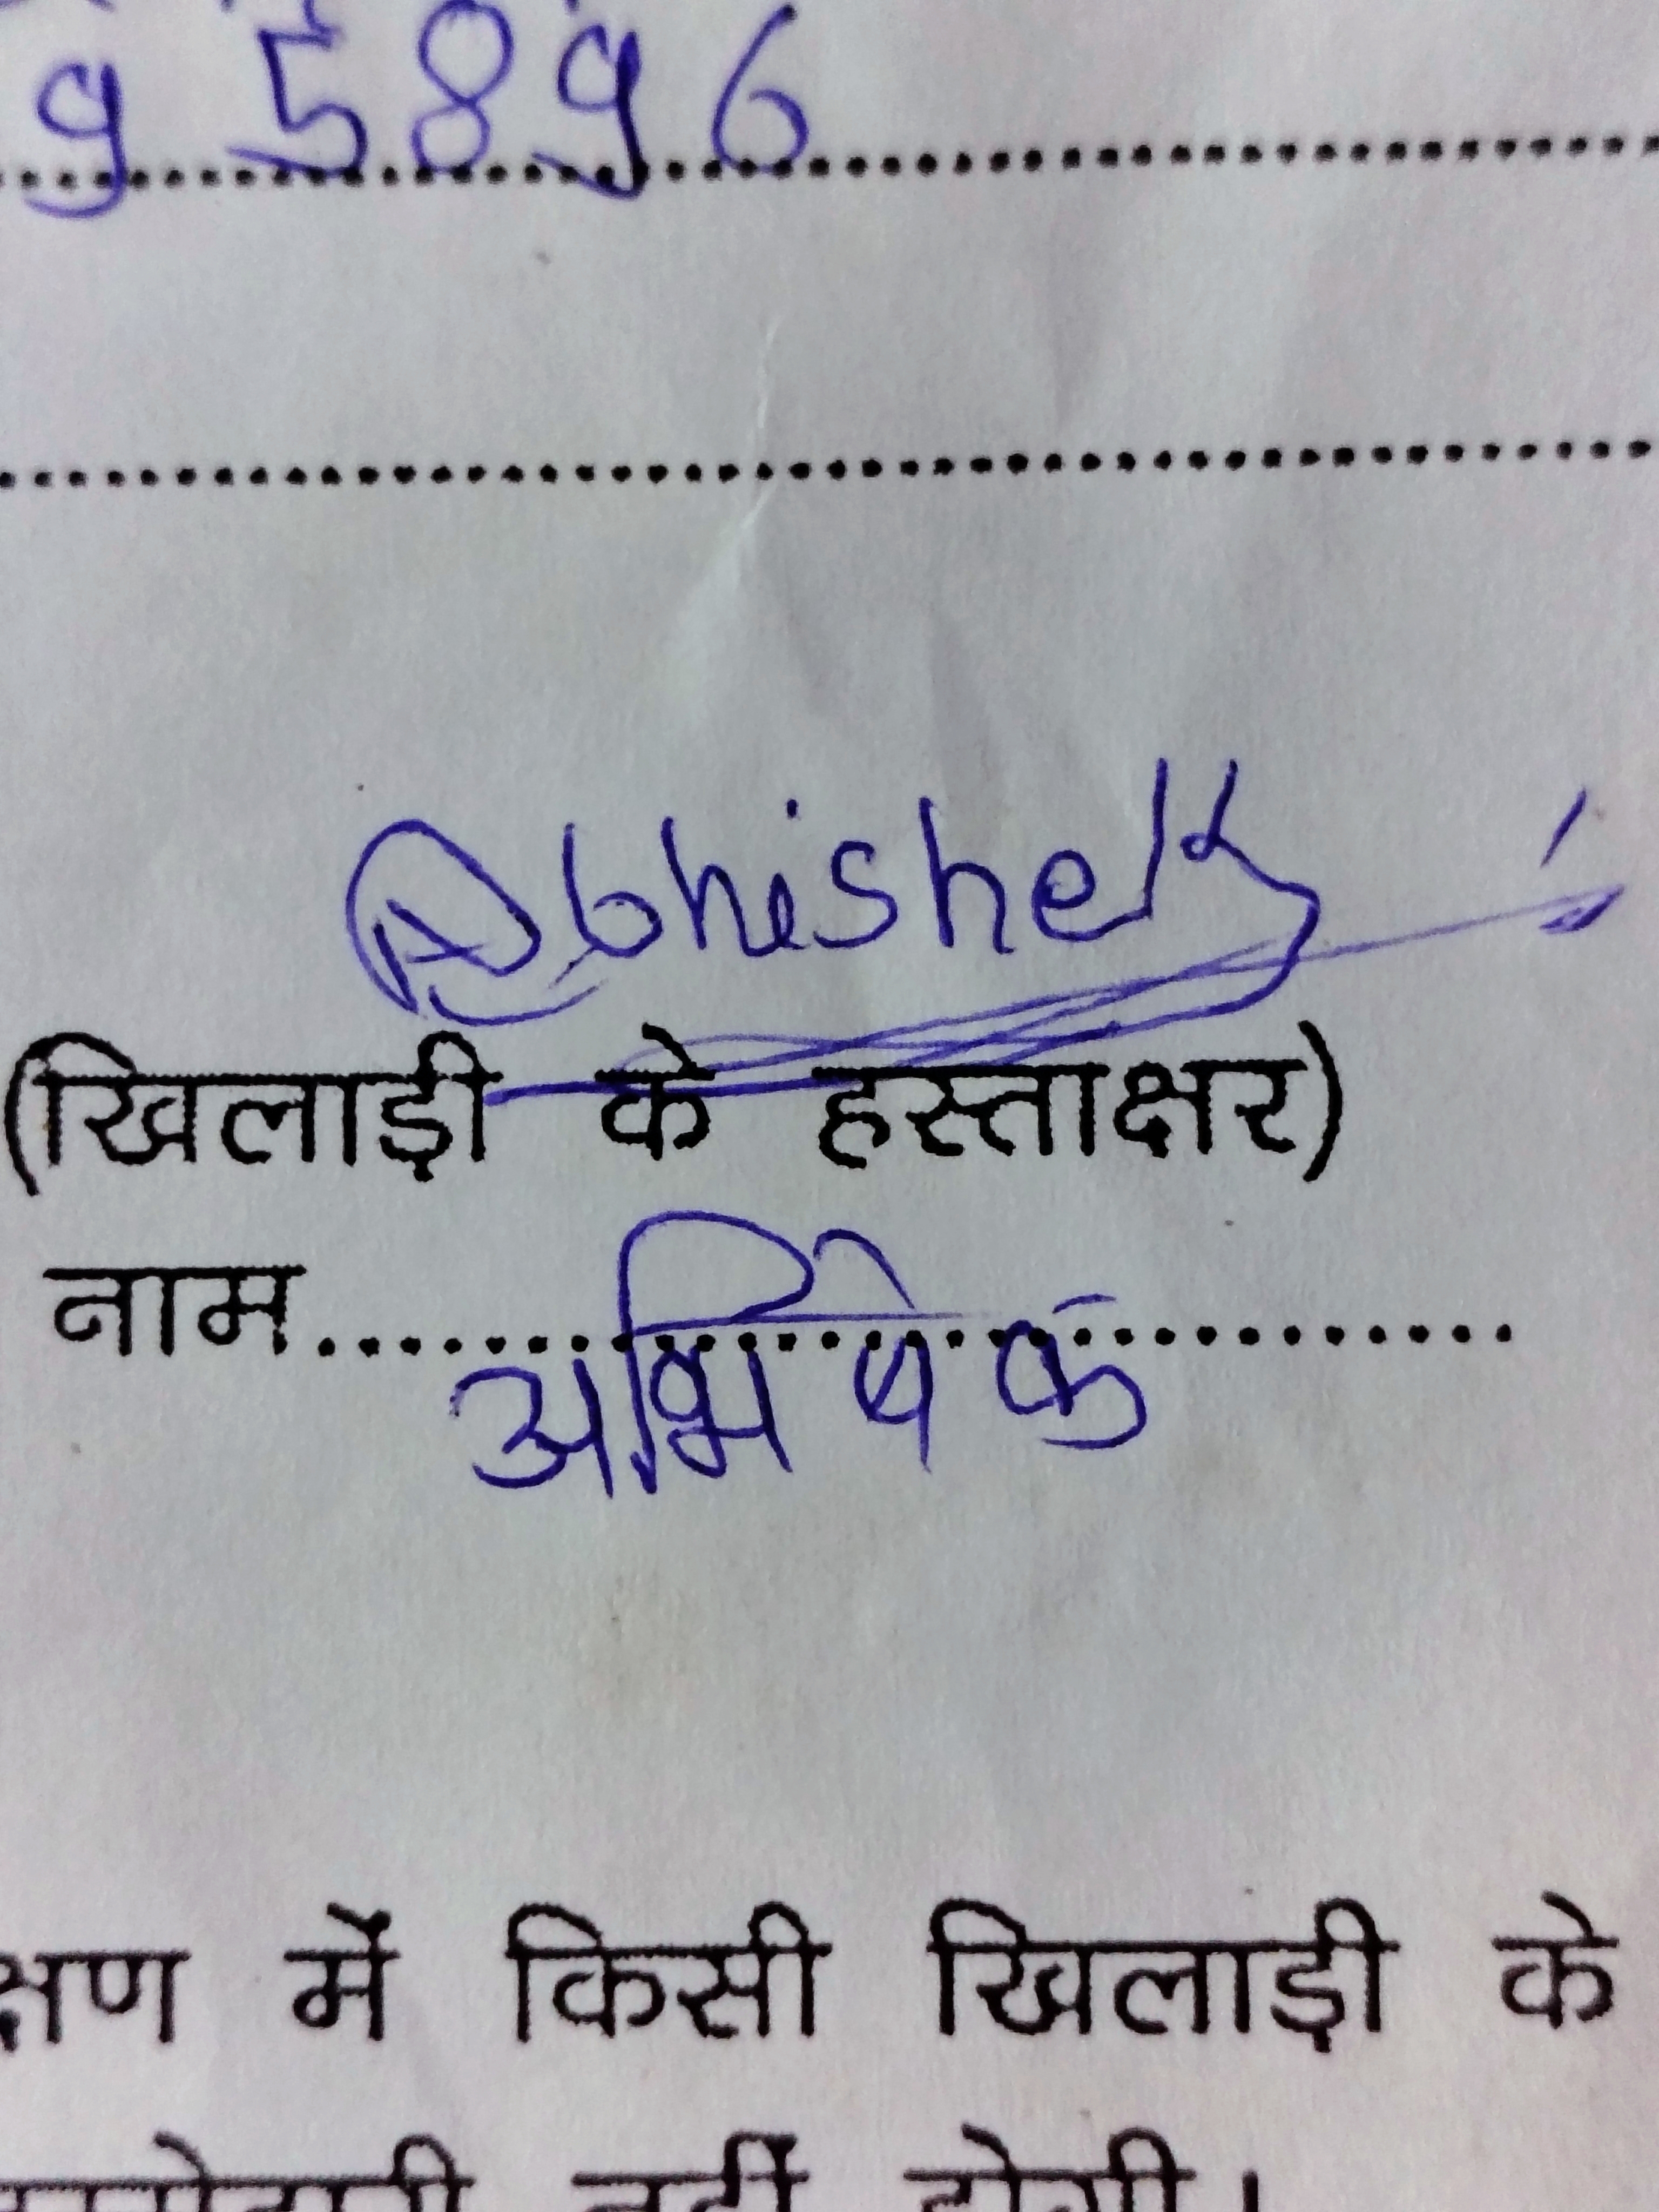 95896
Abhishek
(खिलाड़ी के हस्ताक्षर)
नाम.....................
अभिषेक
क्षण में किसी खिलाड़ी के
नहीं होगी।